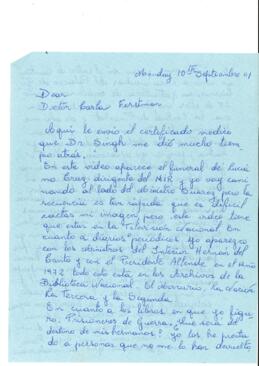 Monday 10th September 01
Dear
Doctor Carla Ferstman
Aquí le envío el certificado medico
que Dr. Singh me dió mucho tiem
po atrás.
En este video aparece el funeral de Luci
ano Cruz dirigente del MIR y yo voy cami
nando al lado del doctor pero la
secuencia es tan rápida que es dificil
mi imagen pero este video tiene
que estar en la Television Nacional. En
cuanto a diarios periodicos yo aparezco
con los ministros del Interior Hernan del
Canto y con el Presidente Allende en el año
1972 todo esto está en los Archivos de la
Biblioteca Nacional. El Mercurio, La Nación
La Tercera y la Segunda.
En cuanto a los libros en que yo figu
ro. Prisioneros de Guerra, ¿Que será del
destino de mis hermanos? yo los he presta
do a personas que no me lo han devuelto